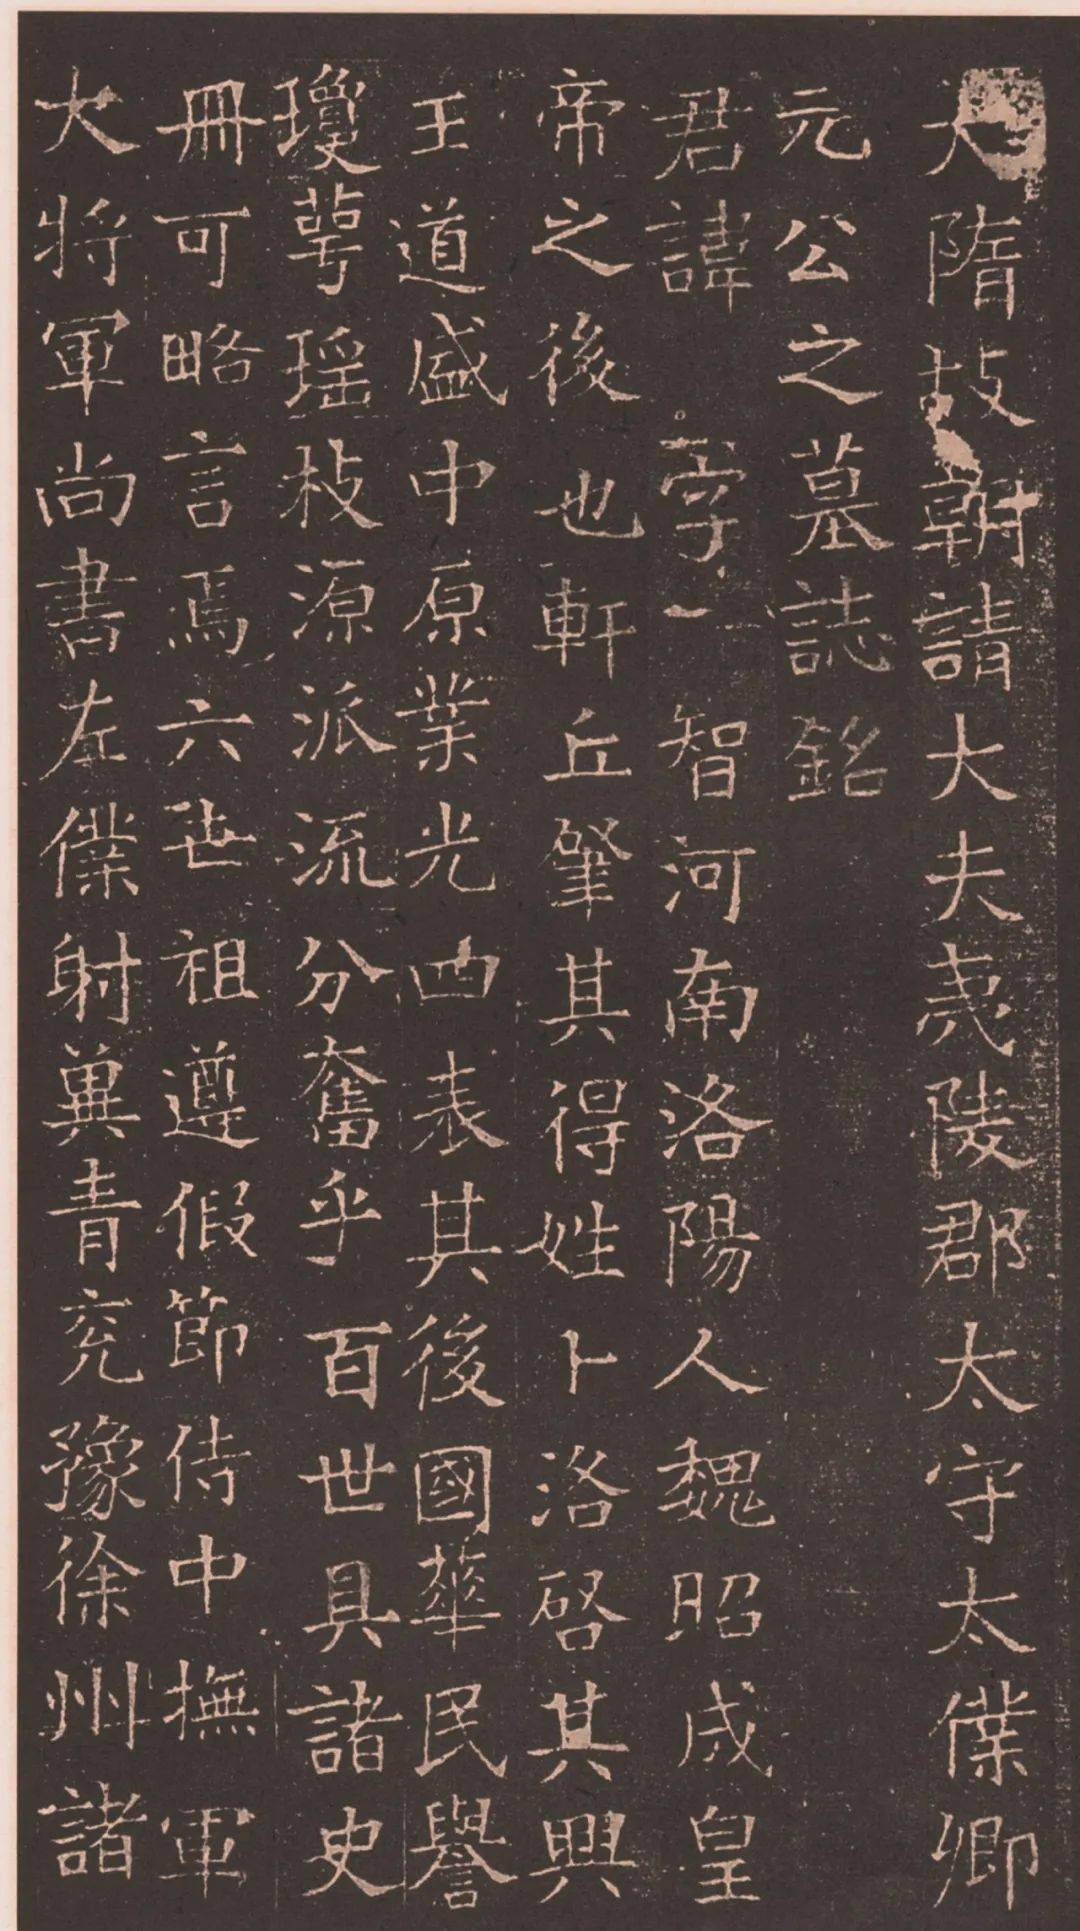 大隋故朝請大夫夷陵郡太守太僕卿
元公之墓誌銘
君諱 字一智河南洛陽人魏昭成皇
帝之後也軒丘肇其得姓卜洛啓其興
王道盛中原業光四表其後國華民譽
瓊萼瑶枝源派流分奮乎百世具諸史
冊可略言焉六世祖遵假節侍中撫軍
大將軍尚書左僕射冀青兗豫徐州諸